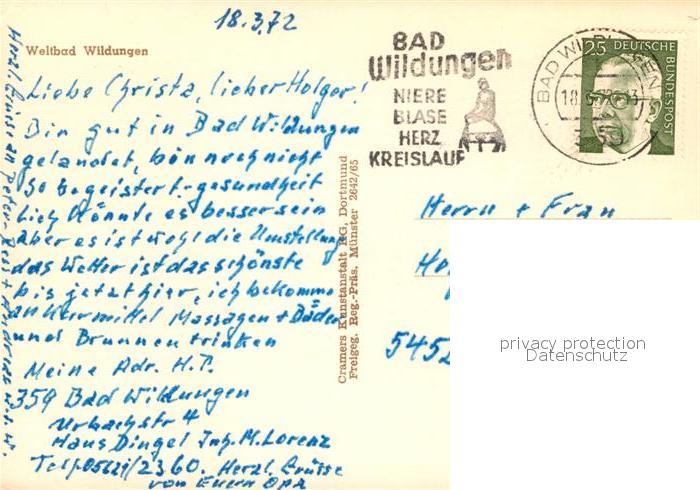 18.3.72
Weltbad Wildungen
Liebe Christa, lieber Holger!
Bin gut in Bad Wildungen
gelandet, bin noch nicht
so begeistert. gesundheit
lich könnte es besser sein
aber es ist wohl die Umstellung
das Wetter ist das schönste
bis jetzt hier, ich bekomme
an Kurmittel Massagen + Bäder
und Brunnen trinken
Meine Adr. H.P.
359 Bad Wildungen
Urbachstr 4
Haus Dingel Inh. M. Lorenz
Telf. 05621/2360. Herzl. Grüsse
von Euern Opa
Herzl. Grüsse an Peter
Cramers Kunstanstalt KG, Dortmund
Freigeg. Reg.-Präs. Münster 2642/65
BAD
Wildungen
NIERE
BLASE
HERZ
KREISLAUF
BAD WILDUNGEN
25 DEUTSCHE
BUNDESPOST
Herrn + Frau
5452
privacy protection
Datenschutz